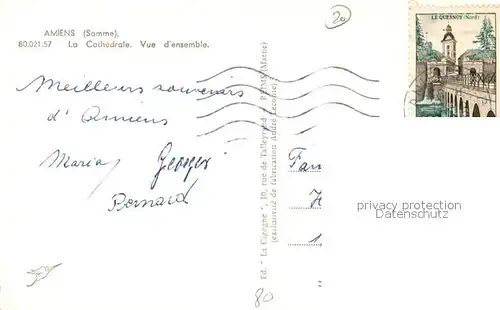 AMIENS (Somme).
80.021.57 La Cathédrale. Vue d'ensemble.
20
LE QUESNOY (Nord)
Meilleurs souvenirs
d'Amiens
Maria Georges
Bernard
Ed. "La Cigogne", 10, rue de Talleyrand - REIMS (Marne)
(exclusivité de fabrication André Leconte)
Fam
privacy protection
Datenschutz
80